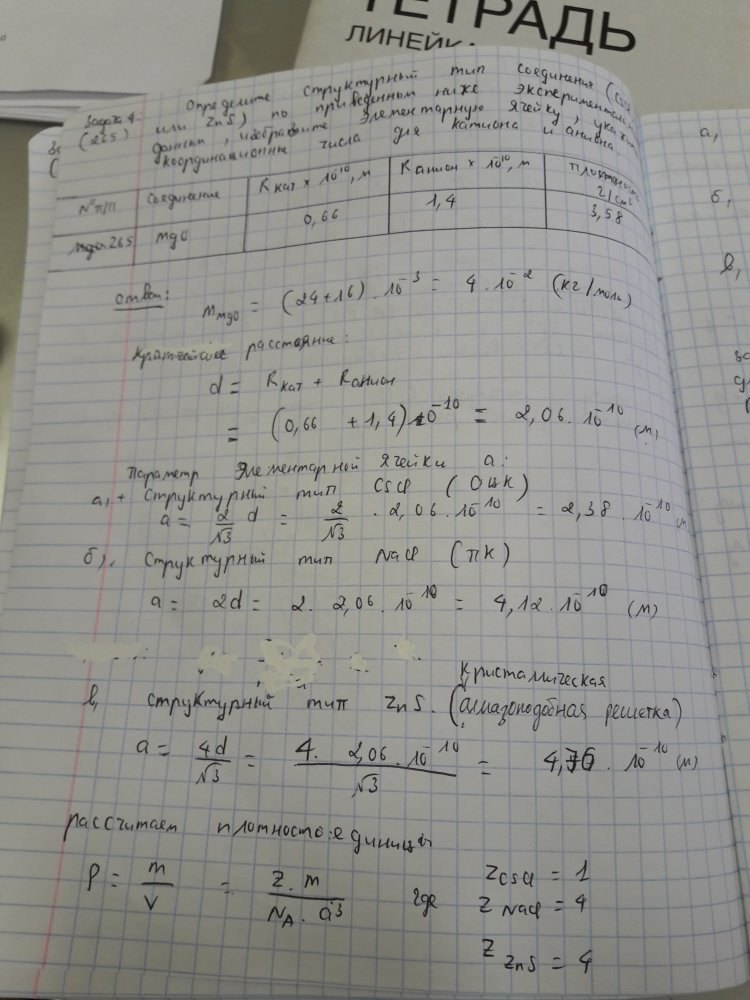 ТЕТРАДЬ
ЛИНЕЙКА
Задача 4. Определите структурный тип соединения (CsCl
(265) или ZnS) по приведенным ниже экспериментальн
данным, изобразите элементарную ячейку, укажи
координационные числа для катиона и аниона.
N°п/п Соединение Rкат × 10¹⁰, м Rанион × 10¹⁰, м плотность г/см³
265 MgO 0,66 1,4 3,58
ответ: m MgO = (24+16) · 10⁻³ = 4 · 10⁻² (кг/моль)
расстояние:
d = Rкат + Rанион
= (0,66 + 1,4) 10⁻¹⁰ = 2,06 · 10⁻¹⁰ (м)
Параметр элементарной ячейки a:
а, + Структурный тип CsCl (ОЦК)
a = 2/√3 d = 2/√3 · 2,06 · 10⁻¹⁰ = 2,38 · 10⁻¹⁰ м
б), Структурный тип NaCl (ПК)
a = 2d = 2 · 2,06 · 10⁻¹⁰ = 4,12 · 10⁻¹⁰ (м)
кристаллическая
в, структурный тип ZnS. (алмазоподобная решетка)
a = 4d/√3 = 4 · 2,06 · 10⁻¹⁰/√3 = 4,76 · 10⁻¹⁰ (м)
рассчитаем плотность единицы
ρ = m/V = Z · m/N_A · a³ где Z CsCl = 1
Z NaCl = 4
Z ZnS = 4
а,
б,
в,